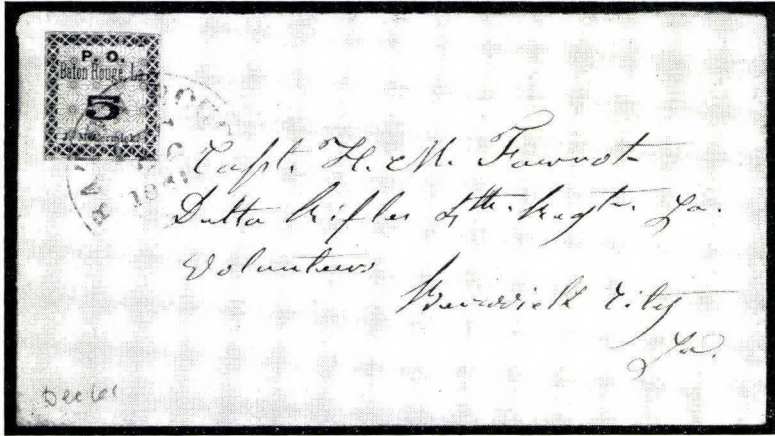 P. O.
Baton Rouge, La.
5
J. McCormick
BATON ROUGE
Capt. H. M. Favrot
Delta Rifles 4th. Regt. La.
Volunteers
Berwick City
La.
Dec 61